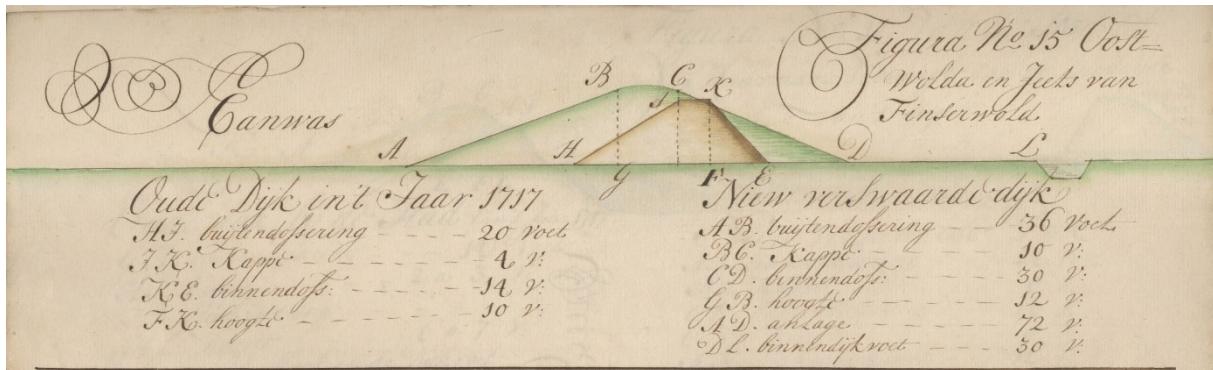 Canwas
Figura No 15 Oost=
Wolda en Jets van
Finserwold
A
B
C
J
K
H
D
L
G
F
E
Oude Dijk in't Jaar 1717
HJ. buijtendossering 20 voet
JK. Kappe 4 v:
KE. binnendoss: 14 v:
FK. hoogte 10 v:
Niew verswaarde dijk
AB. buijtendossering 36 voet
BC. Kappe 10 v:
CD. binnendoss: 30 v:
GB. hoogte 12 v:
AD. anlage 72 v:
DL. binnendijkvoet 30 v: